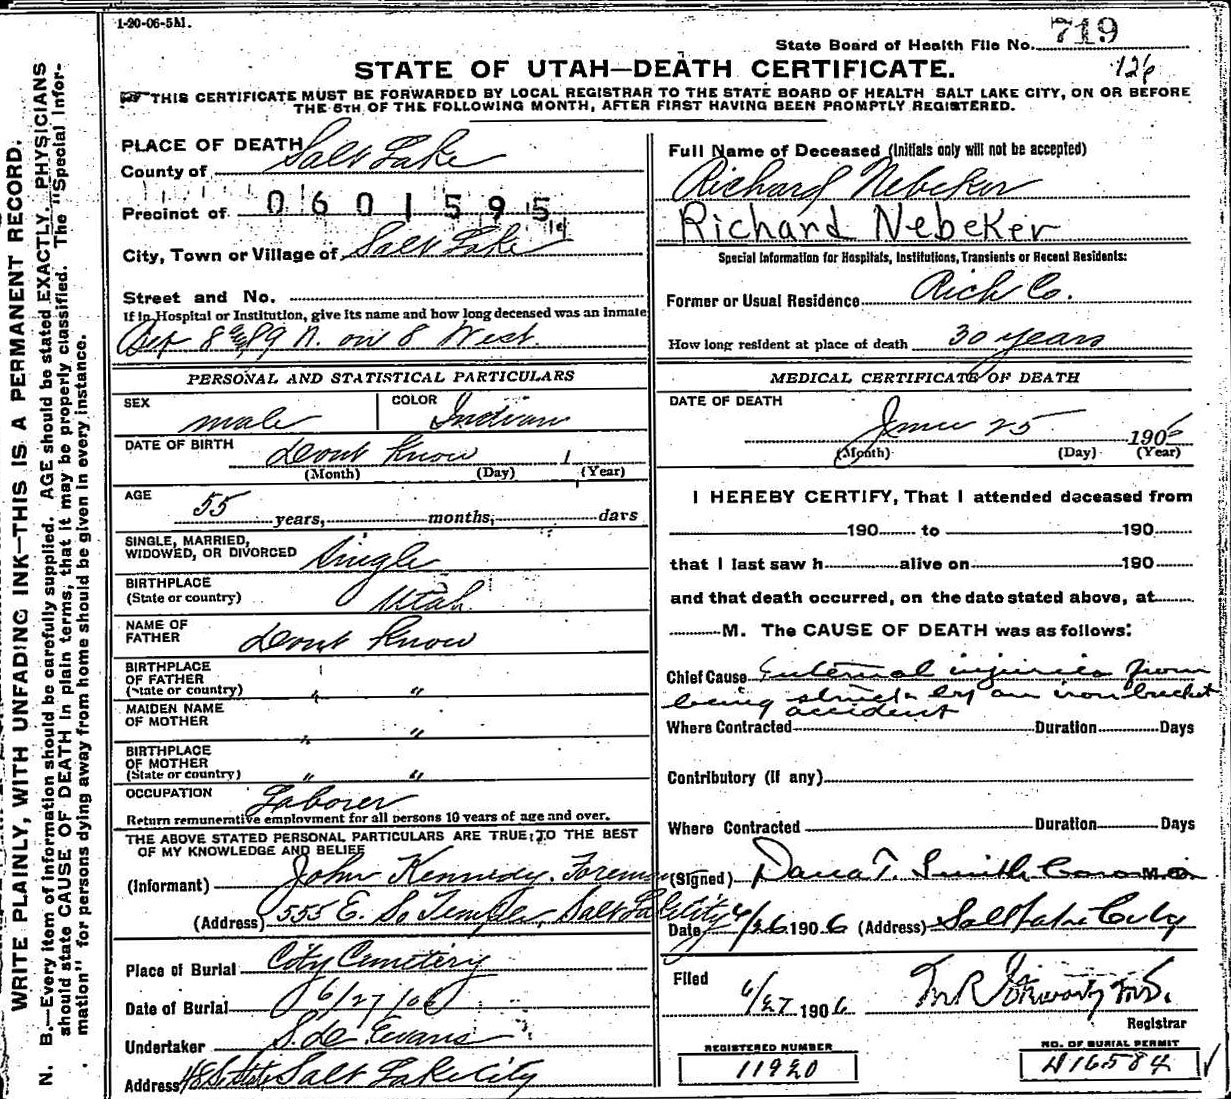 1-20-06-5M.
State Board of Health File No. 719
126
STATE OF UTAH—DEATH CERTIFICATE.
THIS CERTIFICATE MUST BE FORWARDED BY LOCAL REGISTRAR TO THE STATE BOARD OF HEALTH SALT LAKE CITY, ON OR BEFORE
THE 5TH OF THE FOLLOWING MONTH, AFTER FIRST HAVING BEEN PROMPTLY REGISTERED.
WRITE PLAINLY, WITH UNFADING INK—THIS IS A PERMANENT RECORD.
N. B.—Every item of information should be carefully supplied. AGE should be stated EXACTLY. PHYSICIANS
should state CAUSE OF DEATH in plain terms, that it may be properly classified. The "Special Infor-
mation" for persons dying away from home should be given in every instance.
PLACE OF DEATH
County of Salt Lake
Precinct of 0601595
City, Town or Village of Salt Lake
Street and No.
If in Hospital or Institution, give its name and how long deceased was an inmate
8 & 9 N. on 8 West.
PERSONAL AND STATISTICAL PARTICULARS
SEX male COLOR Indian
DATE OF BIRTH dont know 1
(Month) (Day) (Year)
AGE
55 years, months, days
SINGLE, MARRIED,
WIDOWED, OR DIVORCED Single
BIRTHPLACE
(State or country) Utah
NAME OF
FATHER dont know
BIRTHPLACE
OF FATHER
(State or country) " "
MAIDEN NAME
OF MOTHER " "
BIRTHPLACE
OF MOTHER
(State or country) " "
OCCUPATION Laborer
Return remunerative employment for all persons 10 years of age and over.
THE ABOVE STATED PERSONAL PARTICULARS ARE TRUE TO THE BEST
OF MY KNOWLEDGE AND BELIEF
(Informant) John Kennedy. Foreman
(Address) 555 E. So Temple, Salt Lake City
Place of Burial City Cemetery
Date of Burial 6/27/06
Undertaker S. de. Evans
Address 48 S. State Salt Lake City
Full Name of Deceased (Initials only will not be accepted)
Richard Nebeker
Richard Nebeker
Special Information for Hospitals, Institutions, Transients or Recent Residents:
Former or Usual Residence Rich Co.
How long resident at place of death 30 years
MEDICAL CERTIFICATE OF DEATH
DATE OF DEATH
June 25 1906
(Month) (Day) (Year)
I HEREBY CERTIFY, That I attended deceased from
190 to 190
that I last saw h alive on 190
and that death occurred, on the date stated above, at
M. The CAUSE OF DEATH was as follows:
Chief Cause Internal injuries from
being struck by an iron bucket
accident
Where Contracted Duration Days
Contributory (if any)
Where Contracted Duration Days
(Signed) Dana T. Smith Coroner M. D.
Date 6/26 1906 (Address) Salt Lake City
Filed
6/27 1906
Registrar
REGISTERED NUMBER
11920
NO. OF BURIAL PERMIT
16584